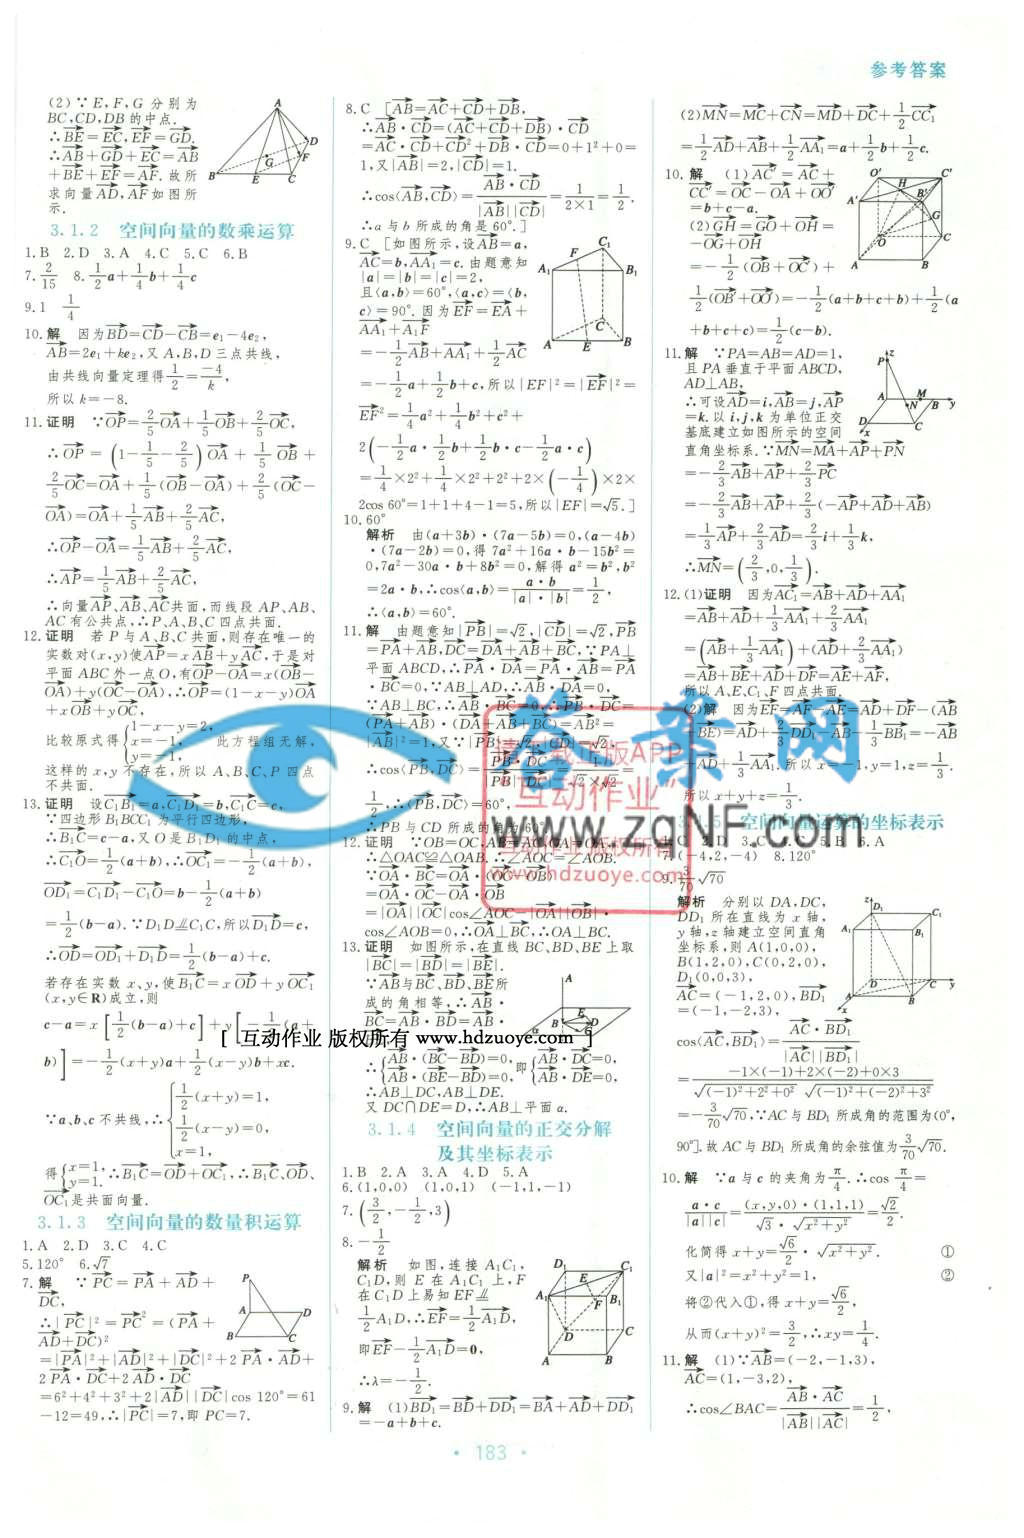 参考答案
(2)∵E,F,G 分别为
BC,CD,DB的中点.
∴BE=EC,EF=GD.
∴AB+GD+EC=AB
+BE+EF=AF.故所
求向量AD,AF如图所
示.
3.1.2 空间向量的数乘运算
1.B 2.D 3.A 4.C 5.C 6.B
7.2/15 8.1/2a+1/4b+1/4c
9.1 1/4
10.解 因为BD=CD-CB=e₁-4e₂,
AB=2e₁+ke₂,又A,B,D三点共线,
由共线向量定理得1/2=-4/k,
所以k=-8.
11.证明 ∵OP=2/5OA+1/5OB+2/5OC,
∴OP=(1-1/5-2/5)OA+1/5OB+
2/5OC=OA+1/5(OB-OA)+2/5(OC-
OA)=OA+1/5AB+2/5AC,
∴OP-OA=1/5AB+2/5AC,
∴AP=1/5AB+2/5AC,
∴向量AP、AB、AC共面,而线段AP、AB、
AC有公共点,∴P、A、B、C四点共面.
12.证明 若P与A、B、C共面,则存在唯一的
实数对(x,y)使AP=xAB+yAC,于是对
平面ABC外一点O,有OP-OA=x(OB-
OA)+y(OC-OA),∴OP=(1-x-y)OA
+xOB+yOC,
比较原式得{1-x-y=2, x=-1, y=-1, 此方程组无解,
这样的x,y不存在,所以A、B、C、P四点
不共面.
13.证明 设C₁B₁=a,C₁D₁=b,C₁C=c,
∵四边形B₁BCC₁为平行四边形,
∴B₁C=c-a,又O是B₁D₁的中点,
∴C₁O=1/2(a+b),∴OC₁=-1/2(a+b),
OD₁=C₁D₁-C₁O=b-1/2(a+b)
=1/2(b-a).∵D₁D∥C₁C,所以D₁D=c,
∴OD=OD₁+D₁D=1/2(b-a)+c.
若存在实数x、y,使B₁C=xOD+yOC₁
(x,y∈R)成立,则
c-a=x[1/2(b-a)+c]+y[-1/2(a+
b)]=-1/2(x+y)a+1/2(x-y)b+xc.
∵a、b、c不共线,∴{1/2(x+y)=1, 1/2(x-y)=0, x=1,
得{x=1, y=1. ∴B₁C=OD+OC₁,∴B₁C、OD、
OC₁是共面向量.
3.1.3 空间向量的数量积运算
1.A 2.D 3.C 4.C
5.120° 6.√7
7.解 ∵PC=PA+AD+
DC,
∴|PC|²=PC²=(PA+
AD+DC)²
=|PA|²+|AD|²+|DC|²+2PA·AD+
2PA·DC+2AD·DC
=6²+4²+3²+2|AD||DC|cos 120°=61
-12=49,∴|PC|=7,即PC=7.
8.C [AB=AC+CD+DB,
∴AB·CD=(AC+CD+DB)·CD
=AC·CD+CD²+DB·CD=0+1²+0=
1,又|AB|=2,|CD|=1.
∴cos⟨AB,CD⟩=AB·CD/|AB||CD|=1/2×1=1/2.
∴a与b所成的角是60°.]
9.C [如图所示,设AB=a,
AC=b,AA₁=c.由题意知
|a|=|b|=|c|=2,
且⟨a,b⟩=60°,⟨a,c⟩=⟨b,
c⟩=90°.因为EF=EA+
AA₁+A₁F
=-1/2AB+AA₁+1/2AC
=-1/2a+1/2b+c,所以|EF|²=|EF|²=
EF²=1/4a²+1/4b²+c²+
2(-1/2a·1/2b+1/2b·c-1/2a·c)
=1/4×2²+1/4×2²+2²+2×(-1/4)×2×
2cos 60°=1+1+4-1=5,所以|EF|=√5.]
10.60°
解析 由(a+3b)·(7a-5b)=0,(a-4b)
·(7a-2b)=0,得7a²+16a·b-15b²=
0,7a²-30a·b+8b²=0,解得a²=b²,b²
=2a·b,∴cos⟨a,b⟩=a·b/|a|·|b|=1/2,
∴⟨a,b⟩=60°.
11.解 由题意知|PB|=√2,|CD|=√2,PB
=PA+AB,DC=DA+AB+BC,∵PA⊥
平面ABCD,∴PA·DA=PA·AB=PA
·BC=0,∵AB⊥AD,∴AB·DA=0,
∵AB⊥BC,∴AB·BC=0,∴PB·DC=
(PA+AB)·(DA+AB+BC)=AB²=
|AB|²=1,又∵|PB|=√2,|CD|=√2,
∴cos⟨PB,DC⟩=PB·DC/|PB||DC|=1/√2×√2
1/2,∴⟨PB,DC⟩=60°,
∴PB与CD所成的角为60°.
12.证明 ∵OB=OC,AB=AC,OA=OA,
∴△OAC≌△OAB.∴∠AOC=∠AOB.
∵OA·BC=OA·(OC-OB)
=OA·OC-OA·OB
=|OA||OC|cos∠AOC-|OA||OB|·
cos∠AOB=0,∴OA⊥BC,∴OA⊥BC.
13.证明 如图所示,在直线BC、BD、BE上取
|BC|=|BD|=|BE|.
∵AB与BC、BD、BE所
成的角相等,∴AB·
BC=AB·BD=AB·
∴{AB·(BC-BD)=0, AB·(BE-BD)=0, 即{AB·DC=0, AB·DE=0.
∴AB⊥DC,AB⊥DE.
又DC∩DE=D,∴AB⊥平面α.
3.1.4 空间向量的正交分解
及其坐标表示
1.B 2.A 3.A 4.D 5.A
6.(1,0,0) (1,0,1) (-1,1,-1)
7.(3/2,-1/2,3)
8.-1/2
解析 如图,连接A₁C₁,
C₁D,则E在A₁C₁上,F
在C₁D上易知EF∥
1/2A₁D,∴EF=1/2A₁D,
即EF-1/2A₁D=0,
∴λ=-1/2.
9.解 (1)BD₁=BD+DD₁=BA+AD+DD₁
=-a+b+c.
(2)MN=MC+CN=MD+DC+1/2CC₁
=1/2AD+AB+1/2AA₁=a+1/2b+1/2c.
10.解 (1)AC′=AC+
CC′=OC-OA+OO′
=b+c-a.
(2)GH=GO+OH=
-OG+OH
=-1/2(OB+OC′)+
1/2(OB′+OO′)=-1/2(a+b+c+b)+1/2(a
+b+c+c)=1/2(c-b).
11.解 ∵PA=AB=AD=1,
且PA垂直于平面ABCD,
AD⊥AB,
∴可设AD=i,AB=j,AP
=k.以i,j,k为单位正交
基底建立如图所示的空间
直角坐标系.∵MN=MA+AP+PN
=-2/3AB+AP+2/3PC
=-2/3AB+AP+2/3(-AP+AD+AB)
=1/3AP+2/3AD=2/3i+1/3k,
∴MN=(2/3,0,1/3).
12.(1)证明 因为AC₁=AB+AD+AA₁
=AB+AD+1/3AA₁+2/3AA₁
=(AB+1/3AA₁)+(AD+2/3AA₁)
=AB+BE+AD+DF=AE+AF,
所以A、E、C₁、F四点共面.
(2)解 因为EF=AF-AE=AD+DF-(AB
+BE)=AD+2/3DD₁-AB-1/3BB₁=-AB
+AD+1/3AA₁.所以x=-1,y=1,z=1/3.
所以x+y+z=1/3.
空间向量运算的坐标表示
(-4,2,-4) 8.120°
9.3/70√70
解析 分别以DA,DC,
DD₁所在直线为x轴,
y轴,z轴建立空间直角
坐标系,则A(1,0,0),
B(1,2,0),C(0,2,0),
D₁(0,0,3),
AC=(-1,2,0),BD₁
=(-1,-2,3),
cos⟨AC,BD₁⟩=AC·BD₁/|AC||BD₁|
=-1×(-1)+2×(-2)+0×3/√(-1)²+2²+0² √(-1)²+(-2)²+3²
=-3/70√70,∵AC与BD₁所成角的范围为(0°,
90°].故AC与BD₁所成角的余弦值为3/70√70.
10.解 ∵a与c的夹角为π/4.∴cos π/4=
a·c/|a||c|=(x,y,0)·(1,1,1)/√3·√x²+y²=√2/2
化简得x+y=√6/2·√x²+y². ①
又|a|²=x²+y²=1, ②
将②代入①,得x+y=√6/2,
从而(x+y)²=3/2,∴xy=1/4.
11.解 (1)∵AB=(-2,-1,3),
AC=(1,-3,2),
∴cos∠BAC=AB·AC/|AB||AC|=1/2,
[ 互动作业 版权所有 www.hdzuoye.com ]
请下载正版APP
“互动作业”
互动作业 版权所有
www.hdzuoye.com
答案网
www.zqNF.com
· 183 ·